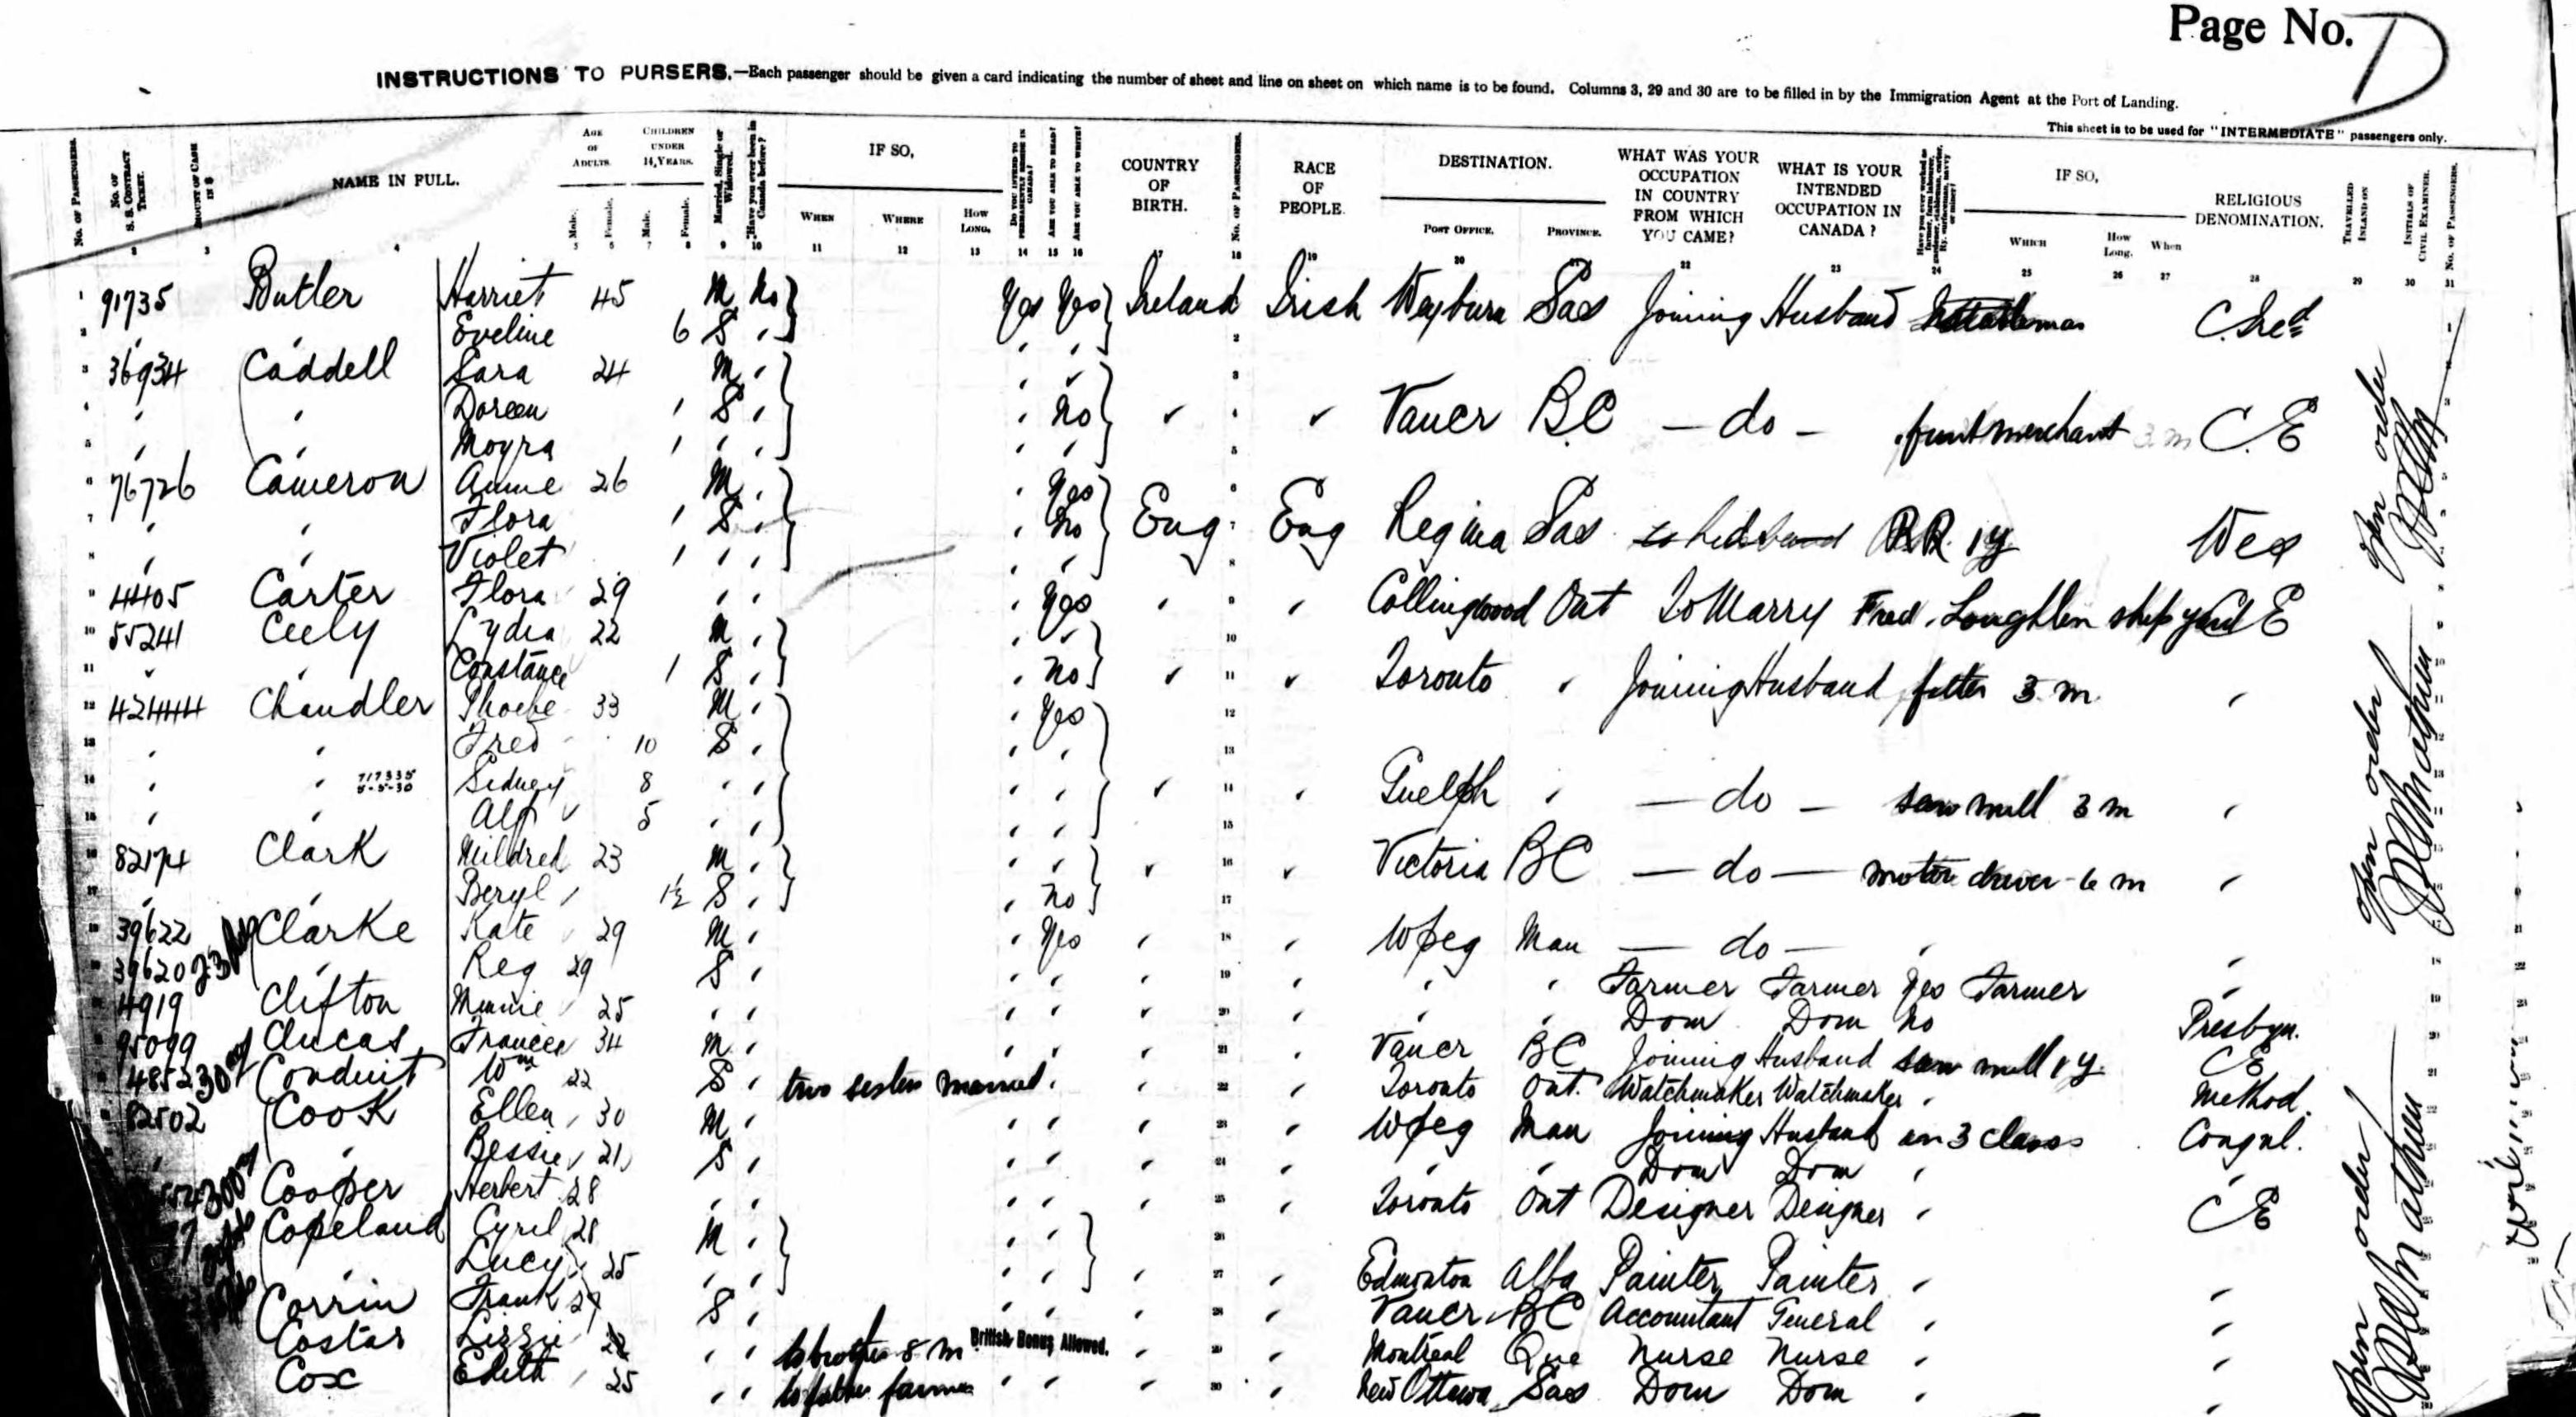 Page No. D
INSTRUCTIONS TO PURSERS.—Each passenger should be given a card indicating the number of sheet and line on sheet on which name is to be found. Columns 3, 29 and 30 are to be filled in by the Immigration Agent at the Port of Landing.
This sheet is to be used for "INTERMEDIATE" passengers only.
No. OF PASSENGERS. No. OF S. S. CONTRACT TICKET. AMOUNT OF CASH IN $ NAME IN FULL. AGE OF ADULTS. Male. Female. CHILDREN UNDER 14 YEARS. Male. Female. Married, Single or Widowed. Have you ever been in Canada before? IF SO, WHEN WHERE How LONG. DO YOU INTEND TO PERMANENTLY RESIDE IN CANADA? ARE YOU ABLE TO READ? ARE YOU ABLE TO WRITE? COUNTRY OF BIRTH. No. OF PASSENGERS. RACE OF PEOPLE. DESTINATION. POST OFFICE. PROVINCE. WHAT WAS YOUR OCCUPATION IN COUNTRY FROM WHICH YOU CAME? WHAT IS YOUR INTENDED OCCUPATION IN CANADA? IF SO, WHICH How Long. When RELIGIOUS DENOMINATION. TRAVELLED INLAND ON INITIALS OF CIVIL EXAMINER. No. OF PASSENGERS.
1 91735 Butler Harriet 45 M No Yes Yes Ireland Irish Weyburn Sas Joining Husband C. Ired
2 " " Eveline 6 S " " " 2
3 36934 Caddell Sara 24 M " " " 3
4 " " Doreen 1 S " " No " 4 " Vancr BC — do — fruit merchant 3 m C.E
5 " " Moyra 1 " " " " 5
6 76726 Cameron Annie 26 M " " Yes 6
7 " " Flora 1 S " " No Eng 7 Eng Regina Sas to husband RR 1 y Wes
8 " " Violet 1 " " " " 8
9 4405 Carter Flora 29 " " " Yes " 9 " Collingwood Ont To Marry Fred. Loughlen ship yard CE
10 55241 Ceely Lydia 22 M " " " 10
11 " " Constance 1 S " " No " 11 " Toronto " Joining Husband fitter 3 m "
12 42444 Chandler Phoebe 33 M " " Yes 12
13 " " Fred 10 S " " " 13
14 " " 717335 5-5-30 Sidney 8 " " " " " 14 " Guelph " — do — saw mill 3 m "
15 " " Alf 5 " " " " 15
16 82174 Clark Mildred 23 M " " " " 16 " Victoria BC — do — motor driver 6 m "
17 " " Beryl 1½ S " " No 17
18 39622 Clarke Kate 29 M " " Yes " 18 " Wpeg Man — do — "
19 39620 " Reg 29 S " " " " 19 " " " Farmer Farmer Yes Farmer "
20 4919 Clifton Minnie 25 " " " " " 20 " " " Dom Dom No Presbyn.
21 95099 Clucas Frances 34 M " " " 21 " Vancr BC Joining Husband saw mill 1 y. CE
Conduit Wm 22 S " two sisters married " " 22 " Toronto Ont. Watchmaker Watchmaker " Method.
82502 Cook Ellen 30 M " " " " 23 " Wpeg Man Joining Husband on 3 class Congnl.
" " Bessie 21 S " " " " 24 " " " Dom Dom " "
Cooper Herbert 28 " " " " " 25 " Toronto Ont Designer Designer " CE
Copeland Cyril 28 M " " " 26
" Lucy 25 " " " " " 27 " Edmonton Alba Painter Painter " "
Corrin Frank 29 S " " " " 28 " Vancr BC Accountant General " "
Costar Lizzie " " to brother 8 m British Bonus Allowed. " 29 " Montreal Que Nurse Nurse " "
Cox Edith 25 " " to father farmer " " " 30 " New Ottawa Sas Dom Dom " "